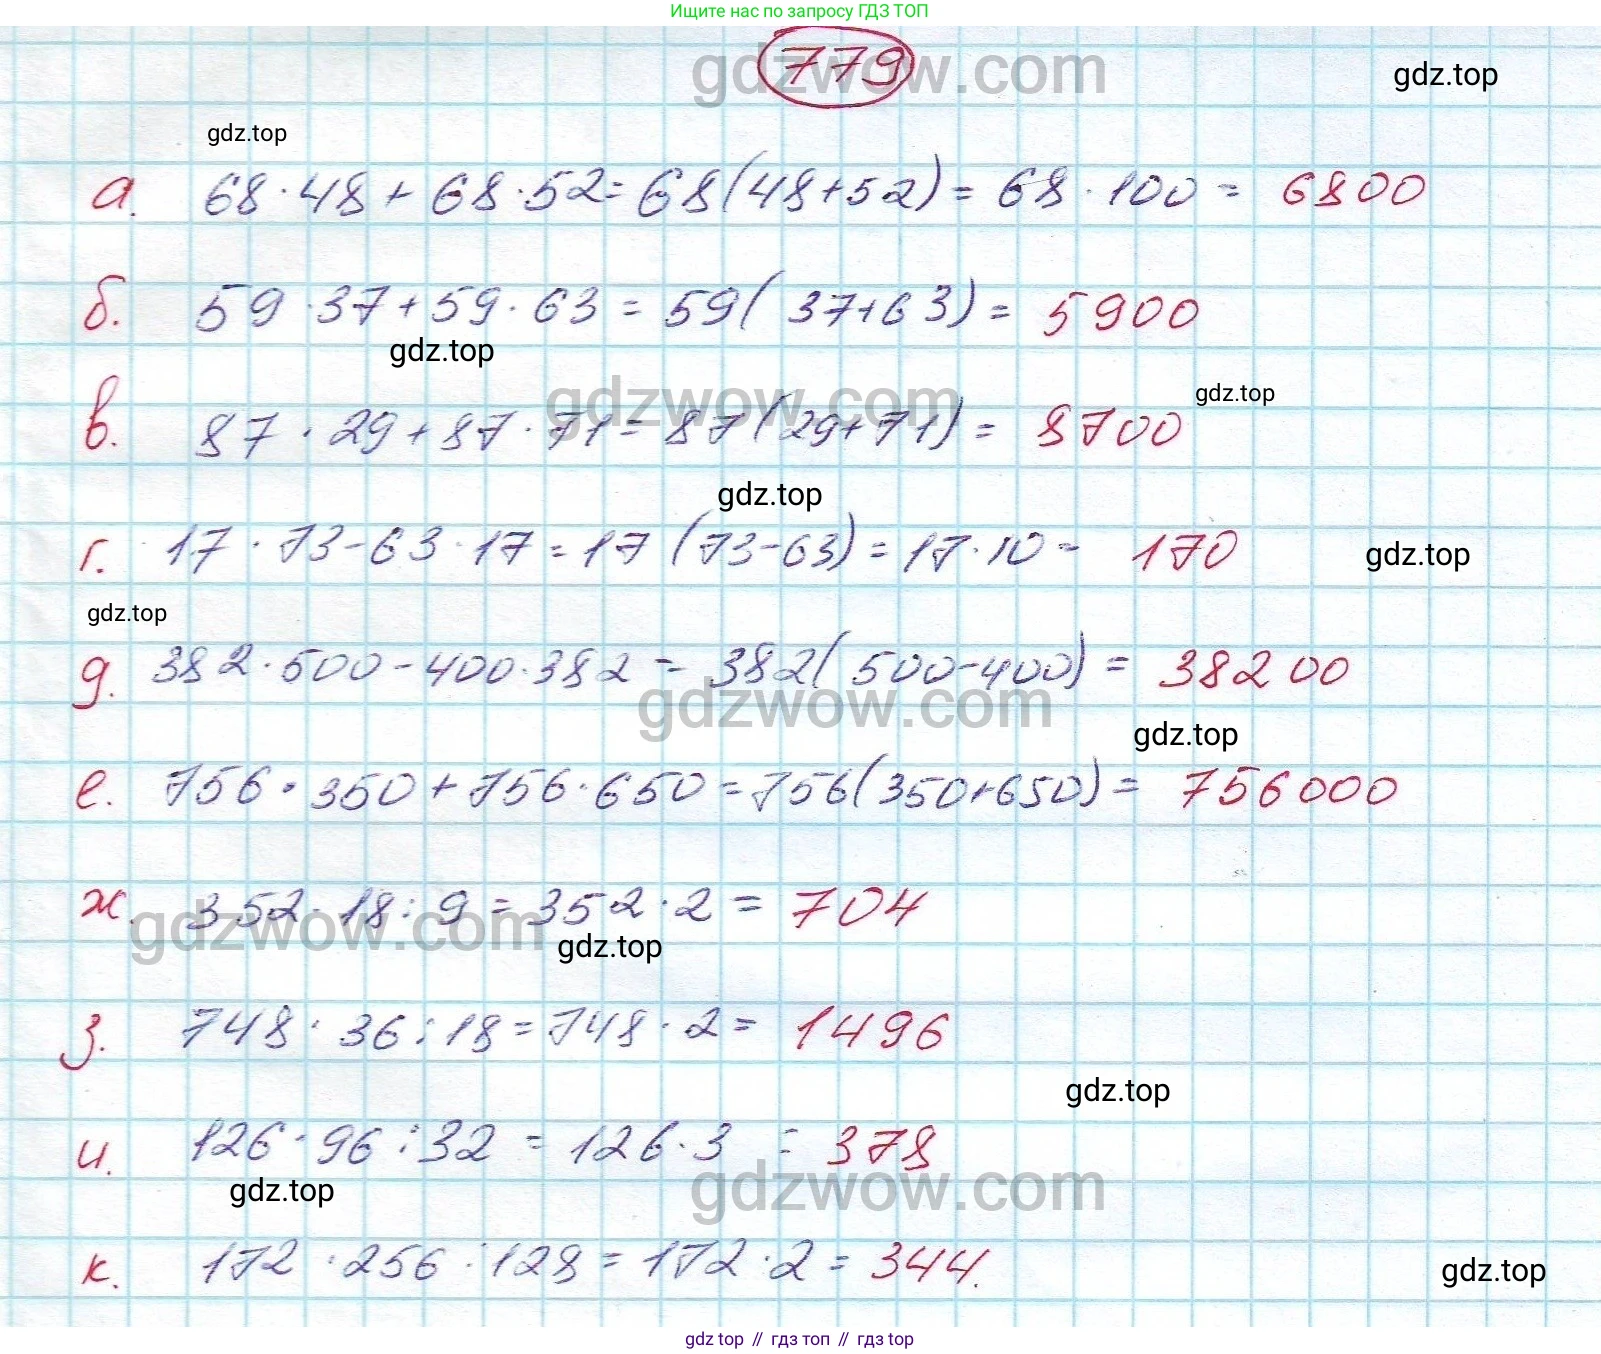 Ищите нас по запросу ГДЗ ТОП
779
gdzwow.com
gdz.top
gdz.top
а. 68·48+68·52=68(48+52)=68·100=6800
б. 59·37+59·63=59(37+63)=5900
gdz.top
gdzwow.com
gdz.top
в. 87·29+87·71=87(29+71)=8700
gdz.top
г. 17·73-63·17=17(73-63)=17·10=170
gdz.top
gdz.top
д. 382·500-400·382=382(500-400)=38200
gdzwow.com
gdz.top
е. 756·350+756·650=756(350+650)=756000
ж. 352·18:9=352·2=704
gdzwow.com
gdz.top
з. 748·36:18=748·2=1496
gdz.top
и. 126·96:32=126·3=378
gdz.top
gdzwow.com
к. 172·256:128=172·2=344.
gdz.top
gdz.top // гдз топ // gdz top